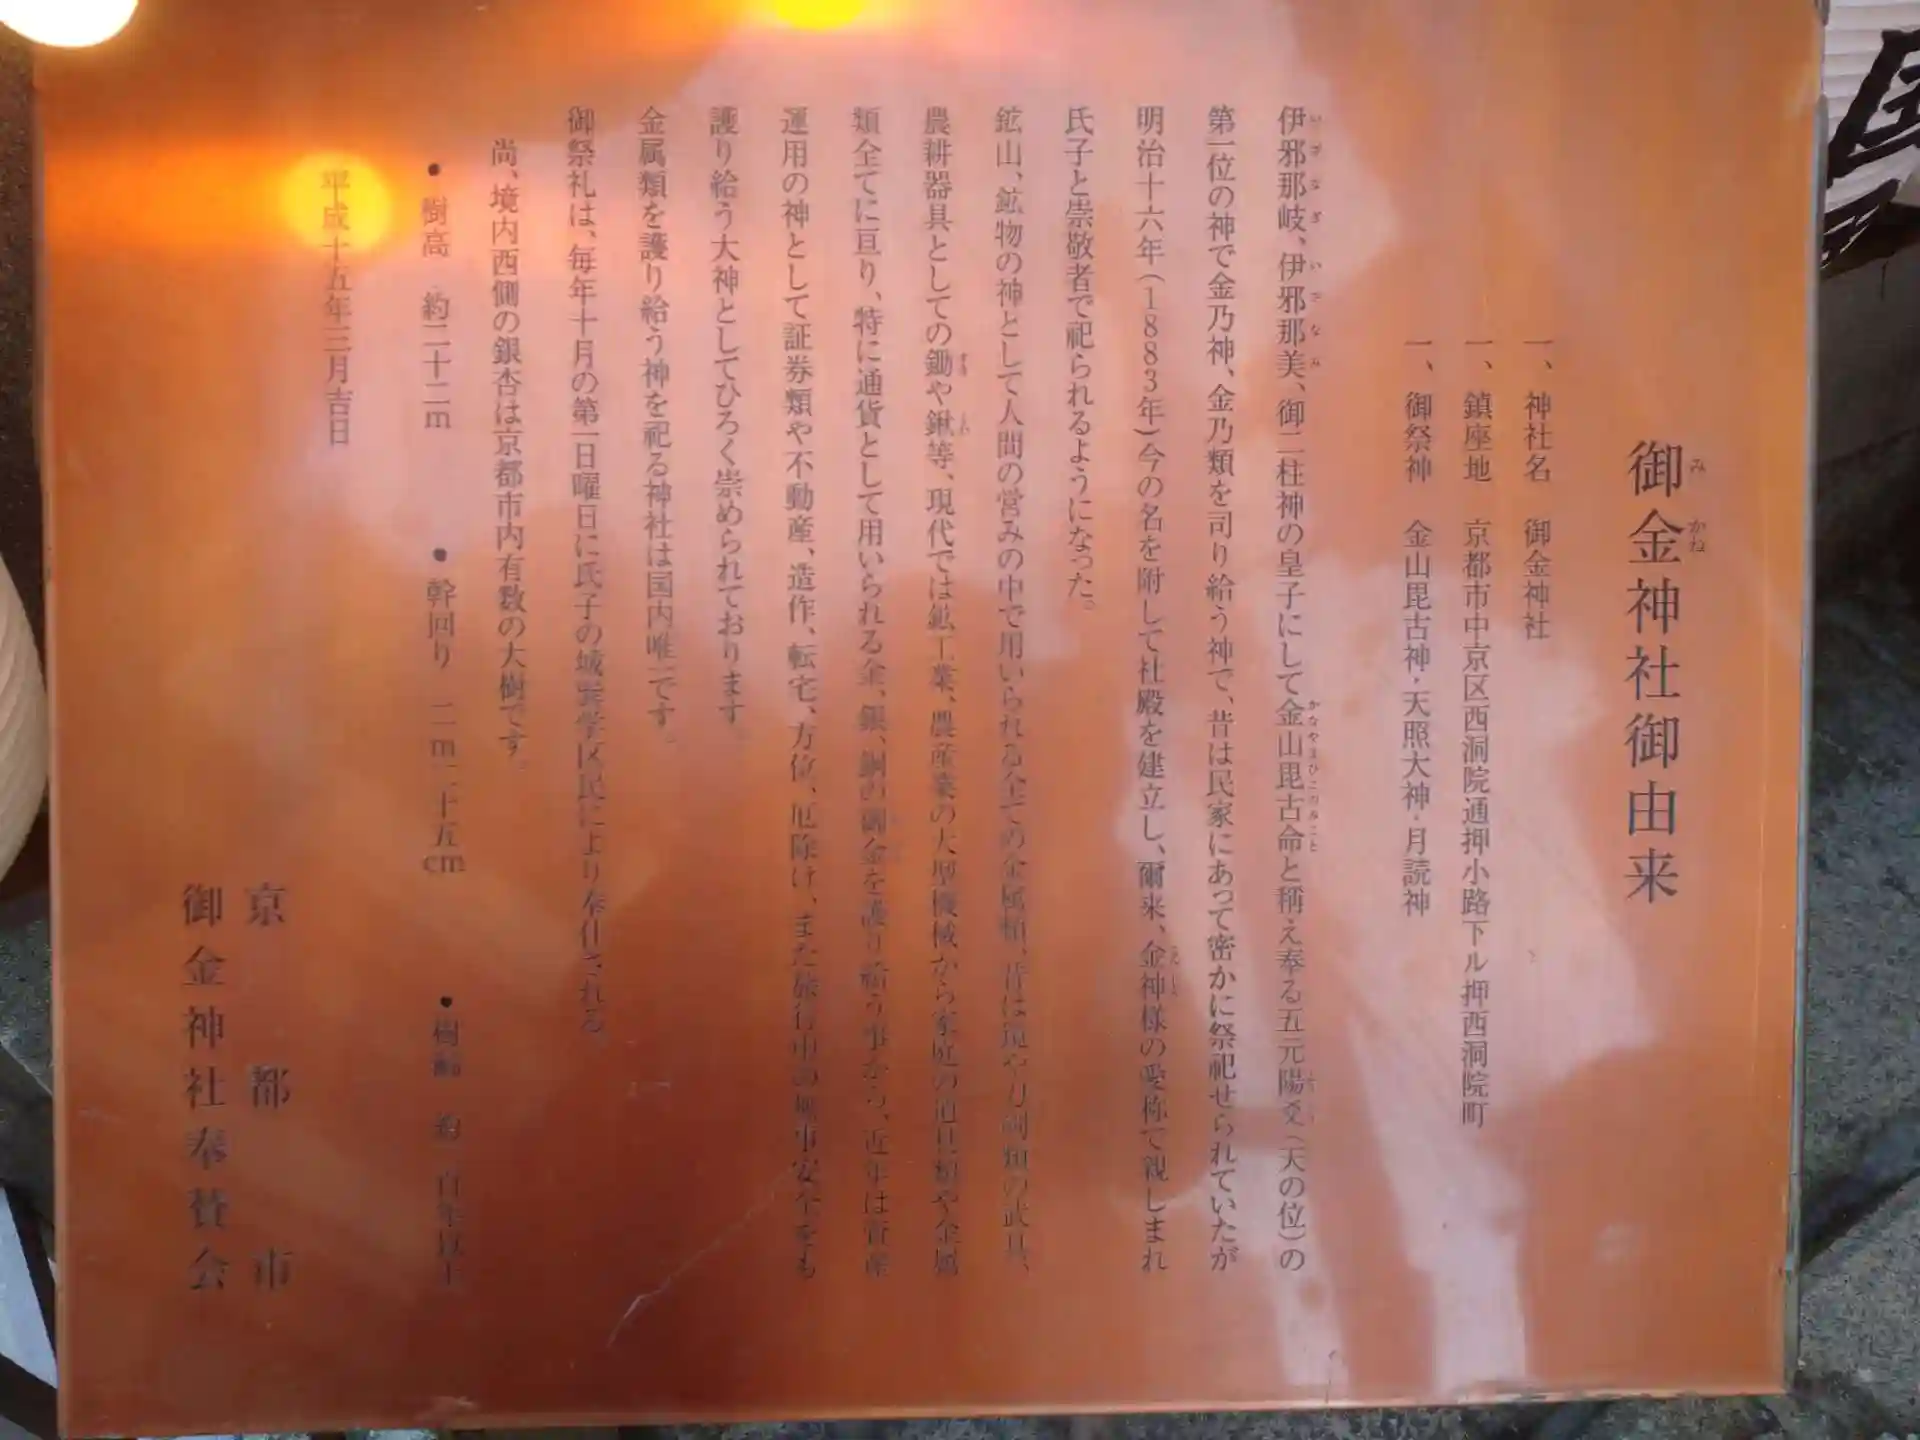 御金神社御由来
一、神社名　御金神社
一、鎮座地　京都市中京区西洞院通押小路下ル押西洞院町
一、御祭神　金山毘古神・天照大神・月読神
伊邪那岐、伊邪那美、御二柱神の皇子にして金山毘古命と称え奉る五元陽爻（天の位）の
第一位の神で金乃神、金乃類を司り給う神で、昔は民家にあって密かに祭祀せられていたが
明治十六年（1883年）今の名を附して社殿を建立し、爾来、金神様の愛称で親しまれ
氏子と崇敬者で祀られるようになった。
鉱山、鉱物の神として人間の営みの中で用いられる全ての金属類、昔は鏡や刀剣類の武具、
農耕器具としての鋤や鍬等、現代では鉱工業、農産業の大型機械から家庭の道具類や金属
類全てに亘り、特に通貨として用いられる金、銀、銅の御金を護り給う事から、近年は資産
運用の神として証券類や不動産、造作、転宅、方位、厄除け、また旅行中の無事安全をも
護り給う大神としてひろく崇められております。
金属類を護り給う神を祀る神社は国内唯一です。
御祭礼は、毎年十月の第一日曜日に氏子の城巽学区民により奉仕される。
尚、境内西側の銀杏は京都市内有数の大樹です。
●樹高　約二十二m　●幹回り　二m二十五cm　●樹齢　約　百年以上
平成十五年三月吉日
京都市
御金神社奉賛会